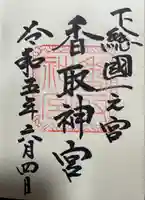 下総國一之宮
香取神宮
令和五年六月四日